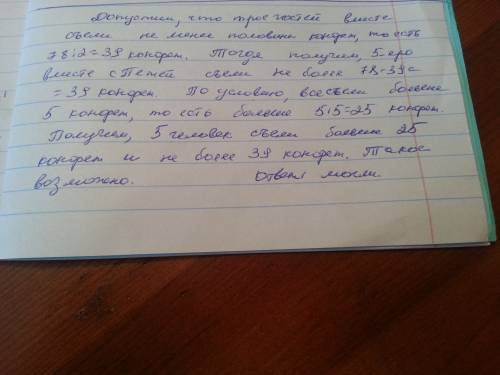 Допустим, что трое гостей вместе
съели не менее половины конфет, то есть
78:2=39 конфет. Тогда получим, 5-еро
вместе с Петей съели не более 78-39=
=39 конфет. По условию, все съели больше
5 конфет, то есть больше 5·5=25 конфет.
Получим, 5 человек съели больше 25
конфет и не более 39 конфет. Такое
возможно. Ответ могли